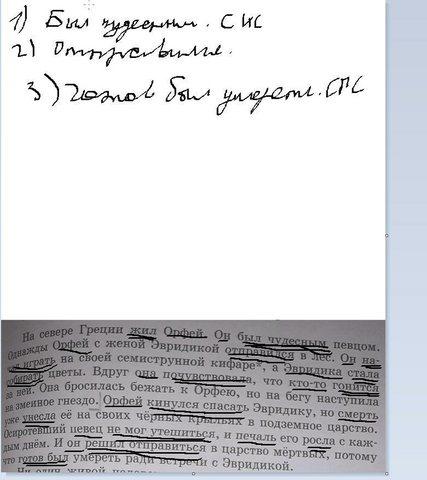 1) Был чудесным. СИС
2) Отправился.
3) Готов был умереть. СГС
На севере Греции жил Орфей. Он был чудесным певцом.
Однажды Орфей с женой Эвридикой отправился в лес. Он на-
играть на своей семиструнной кифаре*, а Эвридика стала
собирать цветы. Вдруг она почувствовала, что кто-то гонится
за ней. Она бросилась бежать к Орфею, но на бегу наступила
на змеиное гнездо. Орфей кинулся спасать Эвридику, но смерть
уже унесла её на своих чёрных крыльях в подземное царство.
Осиротевший певец не мог утешиться, и печаль его росла с каж-
дым днём. И он решил отправиться в царство мёртвых, потому
что готов был умереть ради встречи с Эвридикой.